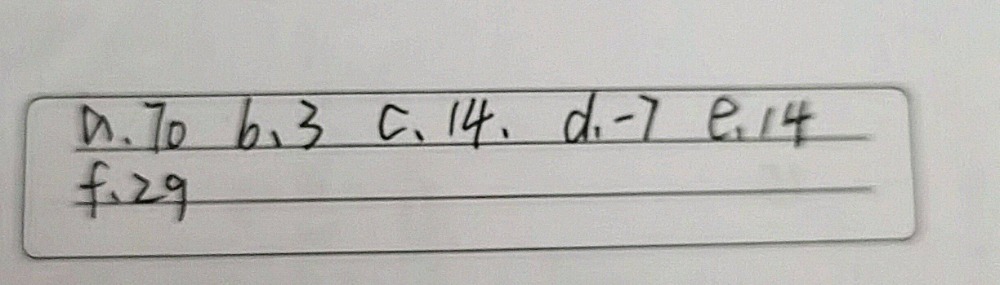 a.70 b.3 c.14. d.-7 e.14
f.29